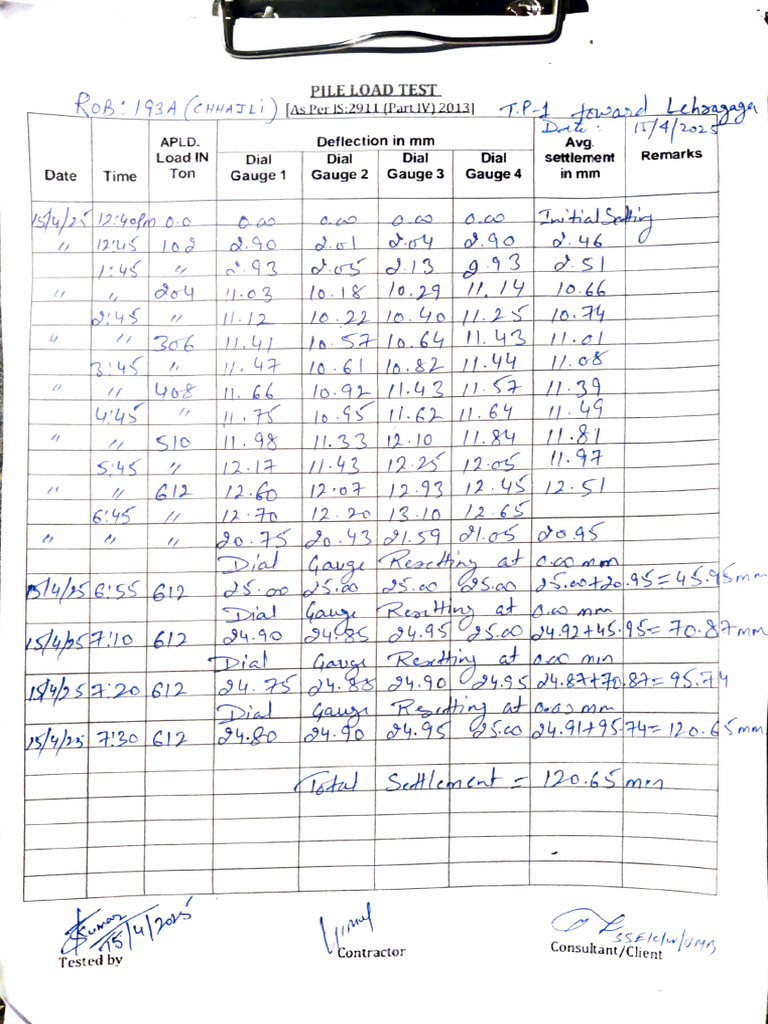 PILE LOAD TEST
ROB: 193A (CHHAJLI) [As Per IS:2911 (Part IV) 2013] T.P-1 toward Lehragaga
Date: 15/4/2025
Date Time APLD. Load IN Ton Deflection in mm Avg. settlement in mm Remarks
Dial Gauge 1 Dial Gauge 2 Dial Gauge 3 Dial Gauge 4
15/4/25 12:40pm 0.0 0.00 0.00 0.00 0.00 Initial Setting
" 12:45 102 2.90 2.01 2.04 2.90 2.46
1:45 " 2.93 2.05 2.13 2.93 2.51
" " 204 11.03 10.18 10.29 11.14 10.66
2:45 " 11.12 10.22 10.40 11.25 10.74
" " 306 11.41 10.57 10.64 11.43 11.01
3:45 " 11.47 10.61 10.82 11.44 11.08
" " 408 11.66 10.92 11.43 11.57 11.39
4:45 " 11.75 10.95 11.62 11.64 11.49
" " 510 11.98 11.33 12.10 11.84 11.81
5:45 " 12.17 11.43 12.25 12.05 11.97
" " 612 12.60 12.07 12.93 12.45 12.51
6:45 " 12.70 12.20 13.10 12.65
" " " 20.75 20.43 21.59 21.05 20.95
Dial Gauge Resetting at 0.00 mm
15/4/25 6:55 612 25.00 25.00 25.00 25.00 25.00+20.95=45.95mm
Dial Gauge Resetting at 0.00 mm
15/4/25 7:10 612 24.90 24.85 24.95 25.00 24.92+45.95=70.87mm
Dial Gauge Resetting at 0.00 mm
15/4/25 7:20 612 24.75 24.88 24.90 24.95 24.87+70.87=95.74
Dial Gauge Resetting at 0.00 mm
15/4/25 7:30 612 24.80 24.90 24.95 25.00 24.91+95.74=120.65mm
Total Settlement = 120.65 mm
Kumar
15/4/2025
Tested by Contractor Consultant/Client